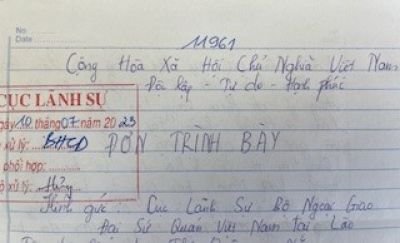 No.
Date
11961
Cộng Hòa Xã Hội Chủ Nghĩa Việt Nam
Độc lập - Tự do - Hạnh phúc
CỤC LÃNH SỰ
gày 10 tháng 07 năm 2023
xử lý: BHCD
ĐƠN TRÌNH BÀY
phối hợp:
xử lý:
Kính gửi: Cục Lãnh Sự Bộ Ngoại Giao
Đại Sứ Quán Việt Nam Tại Lào